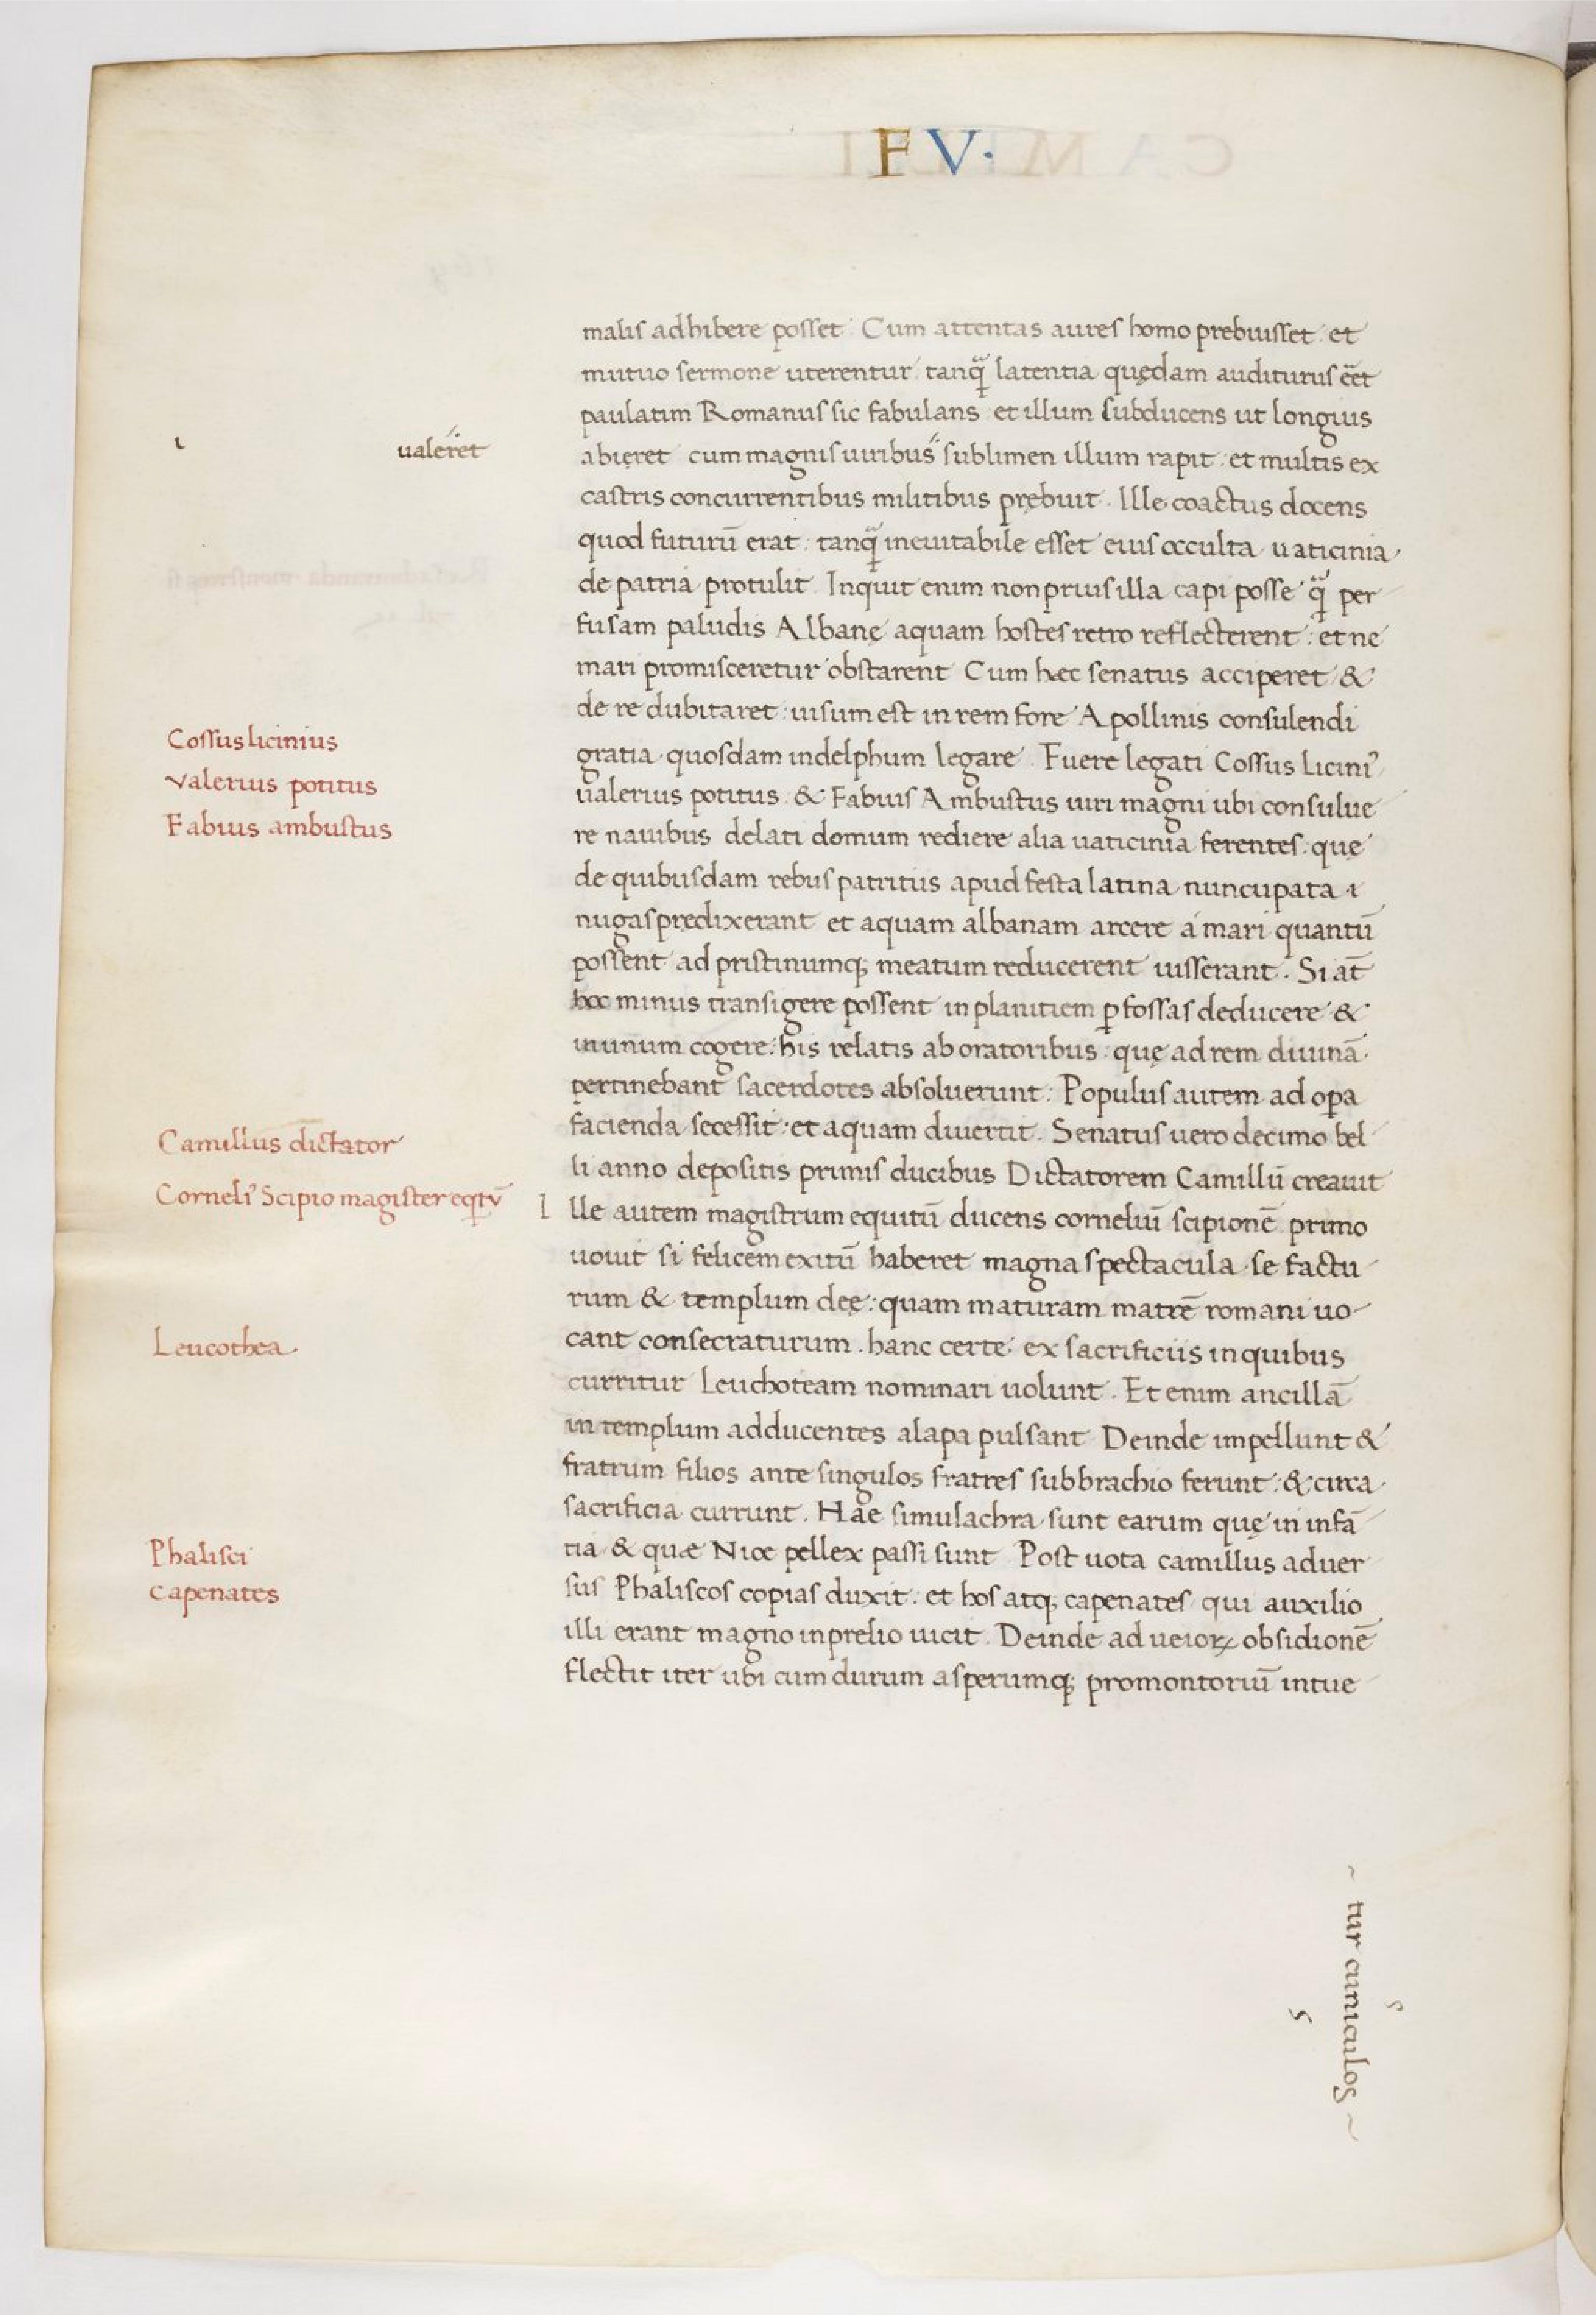 F V·
malis adhibere posset: Cum attentas aures homo prebuisset: et
mutuo sermone uterentur: tanq̃ latentia quędam auditurus eēt
paulatim Romanus sic fabulans: et illum subducens ut longius
ı
ualeret
abieret cum magnis uiribus″ sublimen illum rapit: et multis ex
castris concurrentibus militibus prębuit. Ille coactus docens
quod futurū erat: tanq̃ ineuitabile esset eius occulta uaticinia
de patria protulit. Inquit enim non prius illa capi posse q̃ per
fusam paludis Albanę aquam hostes retro reflecterent: et ne
mari promisceretur obstarent Cum hęc senatus acciperet &
de re dubitaret: uisum est in rem fore Apollinis consulendi
Cossus licinius
gratia quosdam indelphum legare. Fuere legati Cossus Liciniꝰ
Valerius potitus
ualerius potitus & Fabius Ambustus uiri magni ubi consulue
Fabius ambustus
re nauibus delati domum rediere alia uaticinia ferentes: quę
de quibusdam rebus patritiis apud festa latina nuncupata ı
nugas prędixerant et aquam albanam arcere a mari quantū
possent ad pristinumq; meatum reducerent iusserant. Si aūt
hoc minus transigere possent in planitiem ꝑ fossas deducere &
inunum cogere: his relatis ab oratoribus: quę ad rem diuinā
pertinebant sacerdotes absoluerunt: Populus autem ad oꝑa
Camillus dictator
facienda secessit: et aquam diuertit. Senatus uero decimo bel
li anno depositis primis ducibus Dictatorem Camillū creauit
Corneliꝰ Scipio magister eqtū
I lle autem magistrum equitū ducens corneliū scipionē primo
uouit si felicem exitū haberet magna spectacula se factu
rum & templum deę: quam maturam matrē romani uo-
Leucothea
cant consecraturum. hanc certe ex sacrificiis in quibus
curritur Leuchoteam nominari uolunt. Et enim ancillā
in templum adducentes alapa pulsant Deinde impellunt &
fratrum filios ante singulos fratres sub brachio ferunt: & circa
sacrificia currunt. Hae simulachra sunt earum quę in infā
Phalisci
tia & quæ Nioe pellex passi sunt Post uota camillus aduer
capenates
sus Phaliscos copias duxit: et hos atq; capenates qui auxilio
illi erant magno inprelio uicit. Deinde ad ueioꝝ obsidionē
flectit iter ubi cum durum asperumq; promontoriū intue
~ tur cuniculos ~